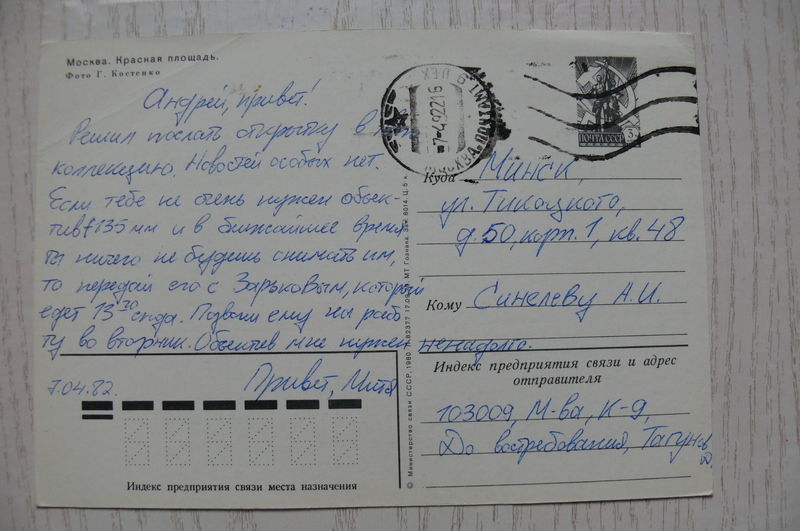 Москва. Красная площадь.
Фото Г. Костенко
Андрей, привет!
Решил послать открытку в
коллекцию. Новостей особых нет.
Если тебе не очень нужен объек-
тив f135мм и в ближайшее время
ты ничего не будешь снимать им,
то передай его с Зарьковым, который
едет 13 30 сюда. Позвони ему на рабо-
ту во вторник. Объектив мне нужен
ненадолго.
7.04.82. Привет, Митя
ПОЧТА СССР
МОСКВА ПОЧТАМТ
Куда Минск,
ул. Тикоцкого,
д. 50, корп. 1, кв. 48
Кому Синелеву А.И.
Индекс предприятия связи и адрес
отправителя
103009, М-ва, К-9,
До востребования, Тагунов
Индекс предприятия связи места назначения
© Министерство связи СССР, 1980
МТ Гознака.